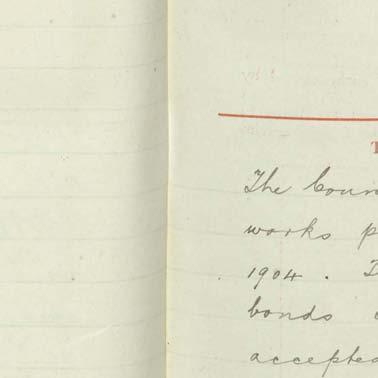 T
The Coun
works p
1904 .
bonds
accepted